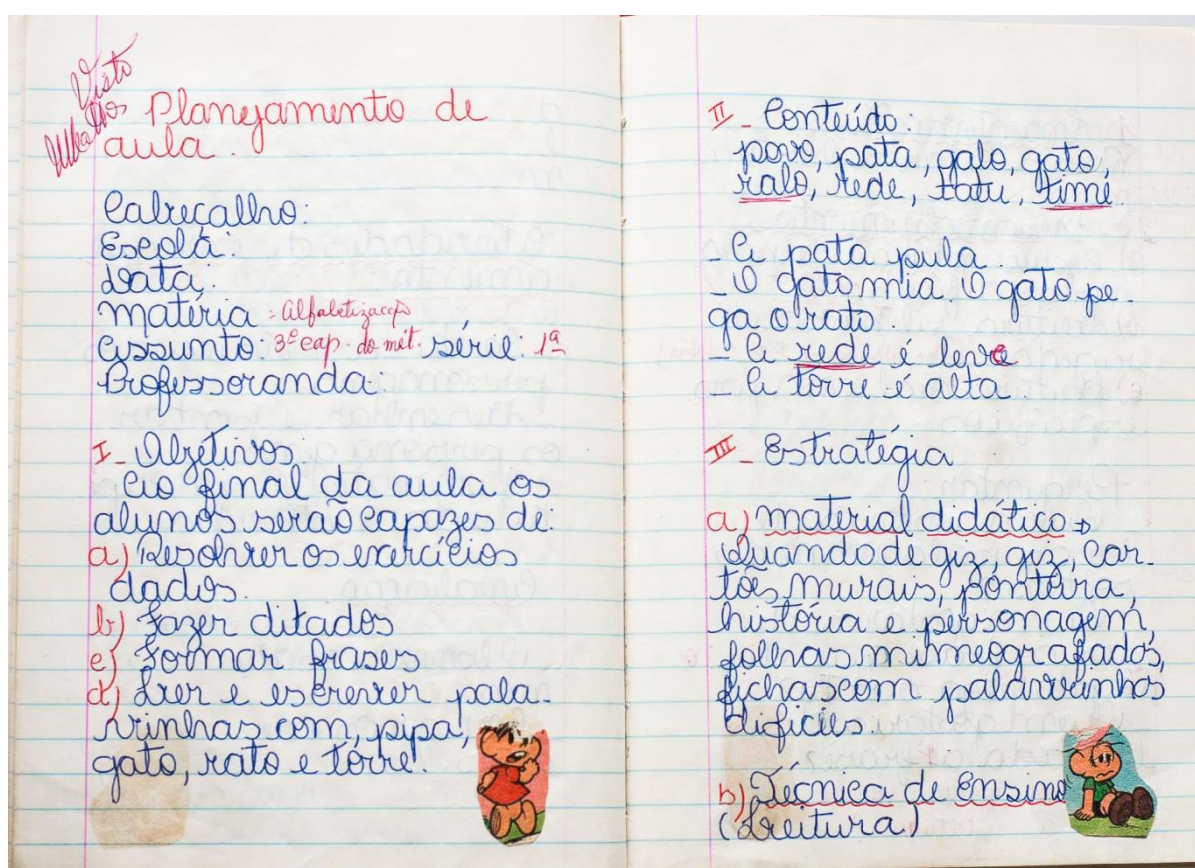 Visto
Planejamento de
aula.
Cabeçalho:
Escola:
Data:
Matéria: Alfabetização
Assunto: 3º cap. do mét. série: 1ª
Professoranda:
I - Objetivos:
Ao final da aula os
alunos serão capazes de:
a) Resolver os exercícios
dados.
b) Fazer ditados
c) Formar frases
d) Ler e escrever pala-
vrinhas com, pipa,
gato, rato e torre.
II - Conteúdo:
povo, pata, galo, gato,
ralo, rede, tatu, timé.
- A pata pula.
- O gato mia. O gato pe-
ga o rato.
- A rede é leve
- A torre é alta.
III - Estratégia
a) material didático →
Quando de giz, giz, car-
tões murais, ponteira,
história e personagem,
folhas mimeografados,
fichas com palavrinhas
dificies.
b) Técnica de Ensino
(Leitura)